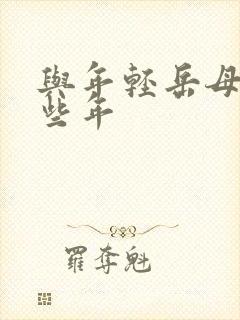 與年輕岳母
些年
羅奪魁